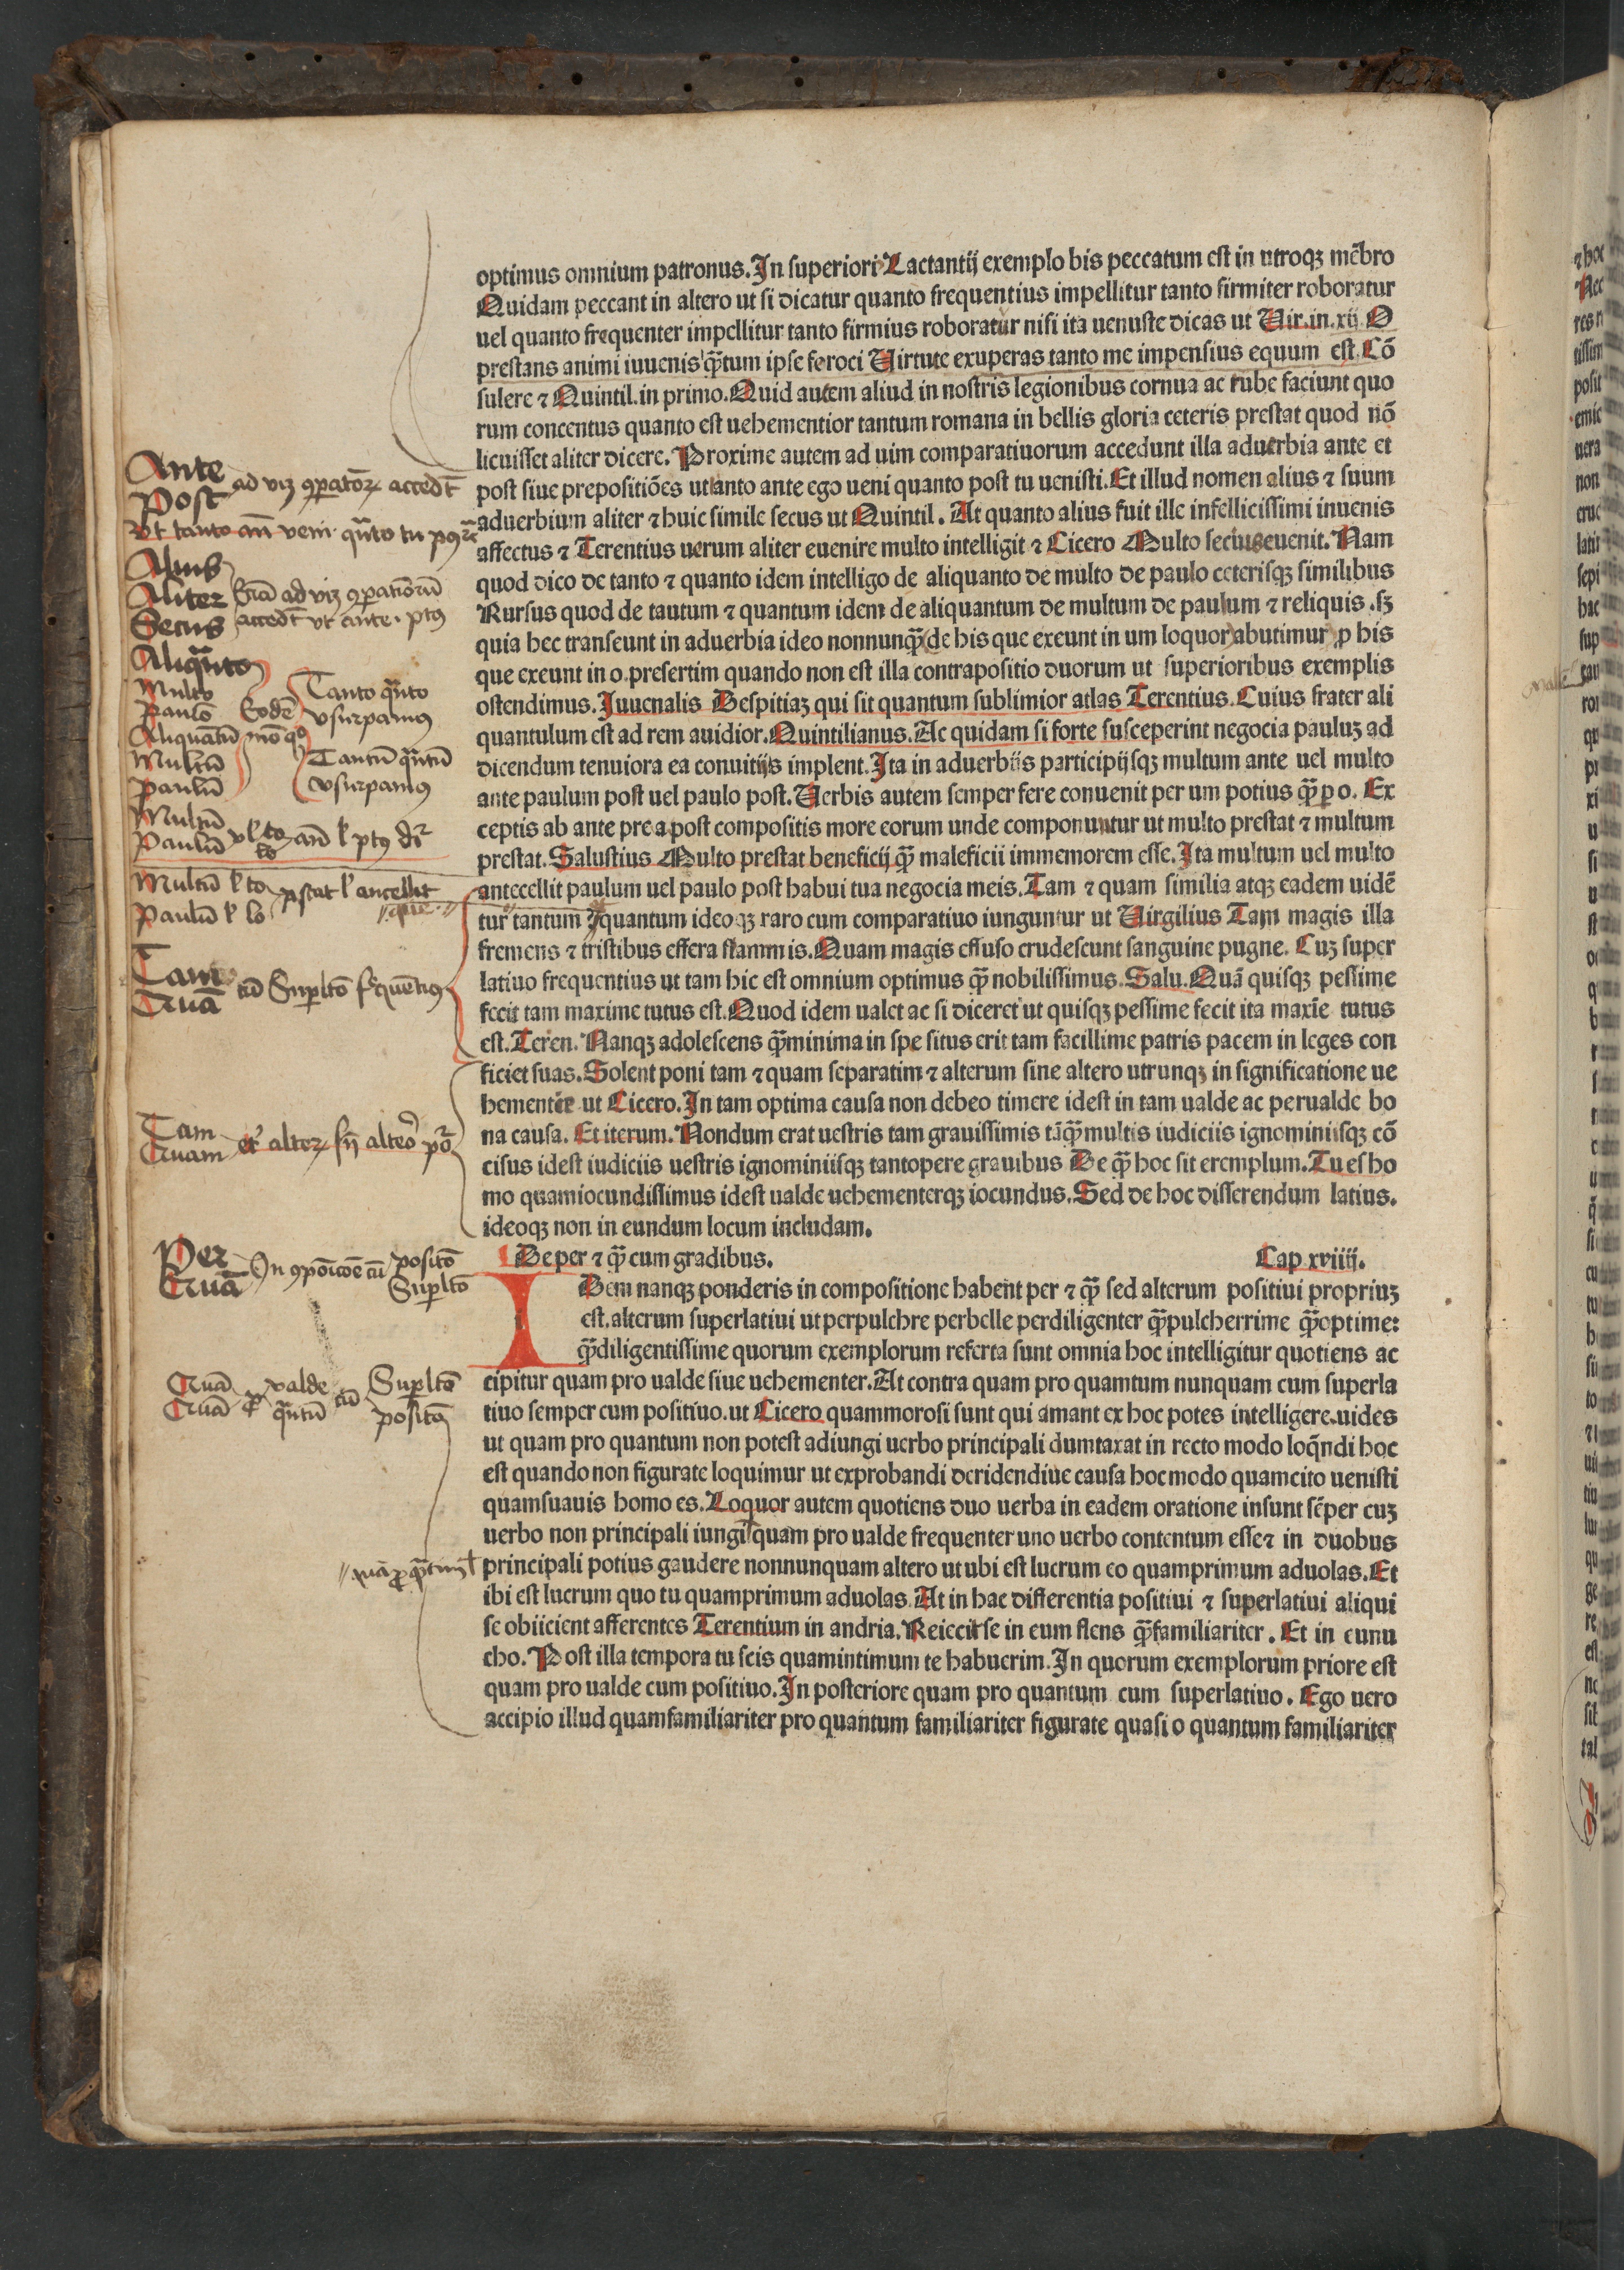 optimus omnium patronus. In superiori Lactantij exemplo bis peccatum est in utroqꝫ mẽbro
Quidam peccant in altero ut si dicatur quanto frequentius impellitur tanto firmiter roboratur
uel quanto frequenter impellitur tanto firmius roboratur nisi ita uenuste dicas ut Uir.in.xij. O
prestans animi iuuenis q̃tum ipse feroci Uirtute exuperas tanto me impensius equum est. Cõ
sulere ⁊ Quintil. in primo. Quid autem aliud in nostris legionibus cornua ac tube faciunt quo
rum concentus quanto est uehementior tantum romana in bellis gloria ceteris prestat quod nõ
licuisset aliter dicere. Proxime autem ad uim comparatiuorum accedunt illa aduerbia ante et
post siue prepositiões ut tanto ante ego ueni quanto post tu uenisti. Et illud nomen alius ⁊ suum
aduerbium aliter ⁊ huic simile secus ut Quintil. At quanto alius fuit ille infellicissimi iuuenis
affectus ⁊ Terentius uerum aliter euenire multo intelligit ⁊ Cicero Multo secius euenit. Nam
quod dico de tanto ⁊ quanto idem intelligo de aliquanto de multo de paulo ceterisqꝫ similibus
Rursus quod de tautum ⁊ quantum idem de aliquantum de multum de paulum ⁊ reliquis .sꝫ
quia hec transeunt in aduerbia ideo nonnunq̃ de his que exeunt in um loquor abutimur ꝓ his
que exeunt in o. presertim quando non est illa contrapositio duorum ut superioribus exemplis
ostendimus. Iuuenalis Despitiaꝫ qui sit quantum sublimior atlas Terentius. Cuius frater ali
quantulum est ad rem auidior. Quintilianus. Ac quidam si forte susceperint negocia pauluꝫ ad
dicendum tenuiora ea conuitijs implent. Ita in aduerbiis participijsqꝫ multum ante uel multo
ante paulum post uel paulo post. Uerbis autem semper fere conuenit per um potius q̃ p o. Ex
ceptis ab ante pre a post compositis more eorum unde componuntur ut multo prestat ⁊ multum
prestat. Salustius Multo prestat beneficij q̃ maleficii immemorem esse. Ita multum uel multo
antecellit paulum uel paulo post habui tua negocia meis. Tam ⁊ quam similia atqꝫ eadem uidẽ
tur tantum ⁊ quantum ideoqꝫ raro cum comparatiuo iunguntur ut Uirgilius Tam magis illa
fremens ⁊ tristibus effera flammis. Quam magis effuso crudescunt sanguine pugne. Cuꝫ super
latiuo frequentius ut tam hic est omnium optimus q̃ nobilissimus. Salu. Quã quisqꝫ pessime
fecit tam maxime tutus est. Quod idem ualet ac si diceret ut quisqꝫ pessime fecit ita maxĩe tutus
est. Teren. Nanqꝫ adolescens q̃minima in spe situs erit tam facillime patris pacem in leges con
ficiet suas. Solent poni tam ⁊ quam separatim ⁊ alterum sine altero utrunqꝫ in significatione ue
hementer ut Cicero. In tam optima causa non debeo timere idest in tam ualde ac perualde bo
na causa. Et iterum. Nondum erat uestris tam grauissimis tãq̃ multis iudiciis ignominiisqꝫ cõ
cisus idest iudiciis uestris ignominiisqꝫ tantopere grauibus De q̃ hoc sit eremplum. Tu es ho
mo quamiocundissimus idest ualde uehementerqꝫ iocundus. Sed de hoc disserendum latius.
ideoqꝫ non in eundum locum includam.
De per ⁊ q̃ cum gradibus. Cap xviiij.
I Dem nanqꝫ ponderis in compositione habent per ⁊ q̃ sed alterum positiui propriuꝫ
est. alterum superlatiui ut perpulchre perbelle perdiligenter q̃pulcherrime q̃optime:
q̃diligentissime quorum exemplorum referta sunt omnia hoc intelligitur quotiens ac
cipitur quam pro ualde siue uehementer. At contra quam pro quamtum nunquam cum superla
tiuo semper cum positiuo. ut Cicero quammorosi sunt qui amant ex hoc potes intelligere. uides
ut quam pro quantum non potest adiungi uerbo principali dumtaxat in recto modo loq̃ndi hoc
est quando non figurate loquimur ut exprobandi deridendiue causa hoc modo quamcito uenisti
quamsuauis homo es. Loquor autem quotiens duo uerba in eadem oratione insunt sẽper cuꝫ
uerbo non principali iungi quam pro ualde frequenter uno uerbo contentum esse⁊ in duobus
principali potius gaudere nonnunquam altero ut ubi est lucrum eo quamprimum aduolas. Et
ibi est lucrum quo tu quamprimum aduolas. At in hac differentia positiui ⁊ superlatiui aliqui
se obiicient afferentes Terentium in andria. Reiecit se in eum flens q̃familiariter. Et in eunu
cho. Post illa tempora tu scis quamintimum te habuerim. In quorum exemplorum priore est
quam pro ualde cum positiuo. In posteriore quam pro quantum cum superlatiuo. Ego uero
accipio illud quamfamiliariter pro quantum familiariter figurate quasi o quantum familiariter
Ante
Post
ad viꝫ ꝯparatoꝝ accedt̃
Alius
Aliter
Secus
Aliq̃nto
Multo
Paulo
Aliquãtũ
Multũ
Paulũ
Eodẽ mõ
Tanto q̃nto
vsurpamus
Tantũ q̃ntũ
vsurpamus
Multũ
Paulũ
Multũ
Paulũ
Tam
Quã
cũ Suplto frequẽtius
Tam
Quam
Per
Quã
posito
Suplto
Quã
Quã
valde
q̃ntũ
cũ
Suplto
posito
quã ꝓ q̃ntum